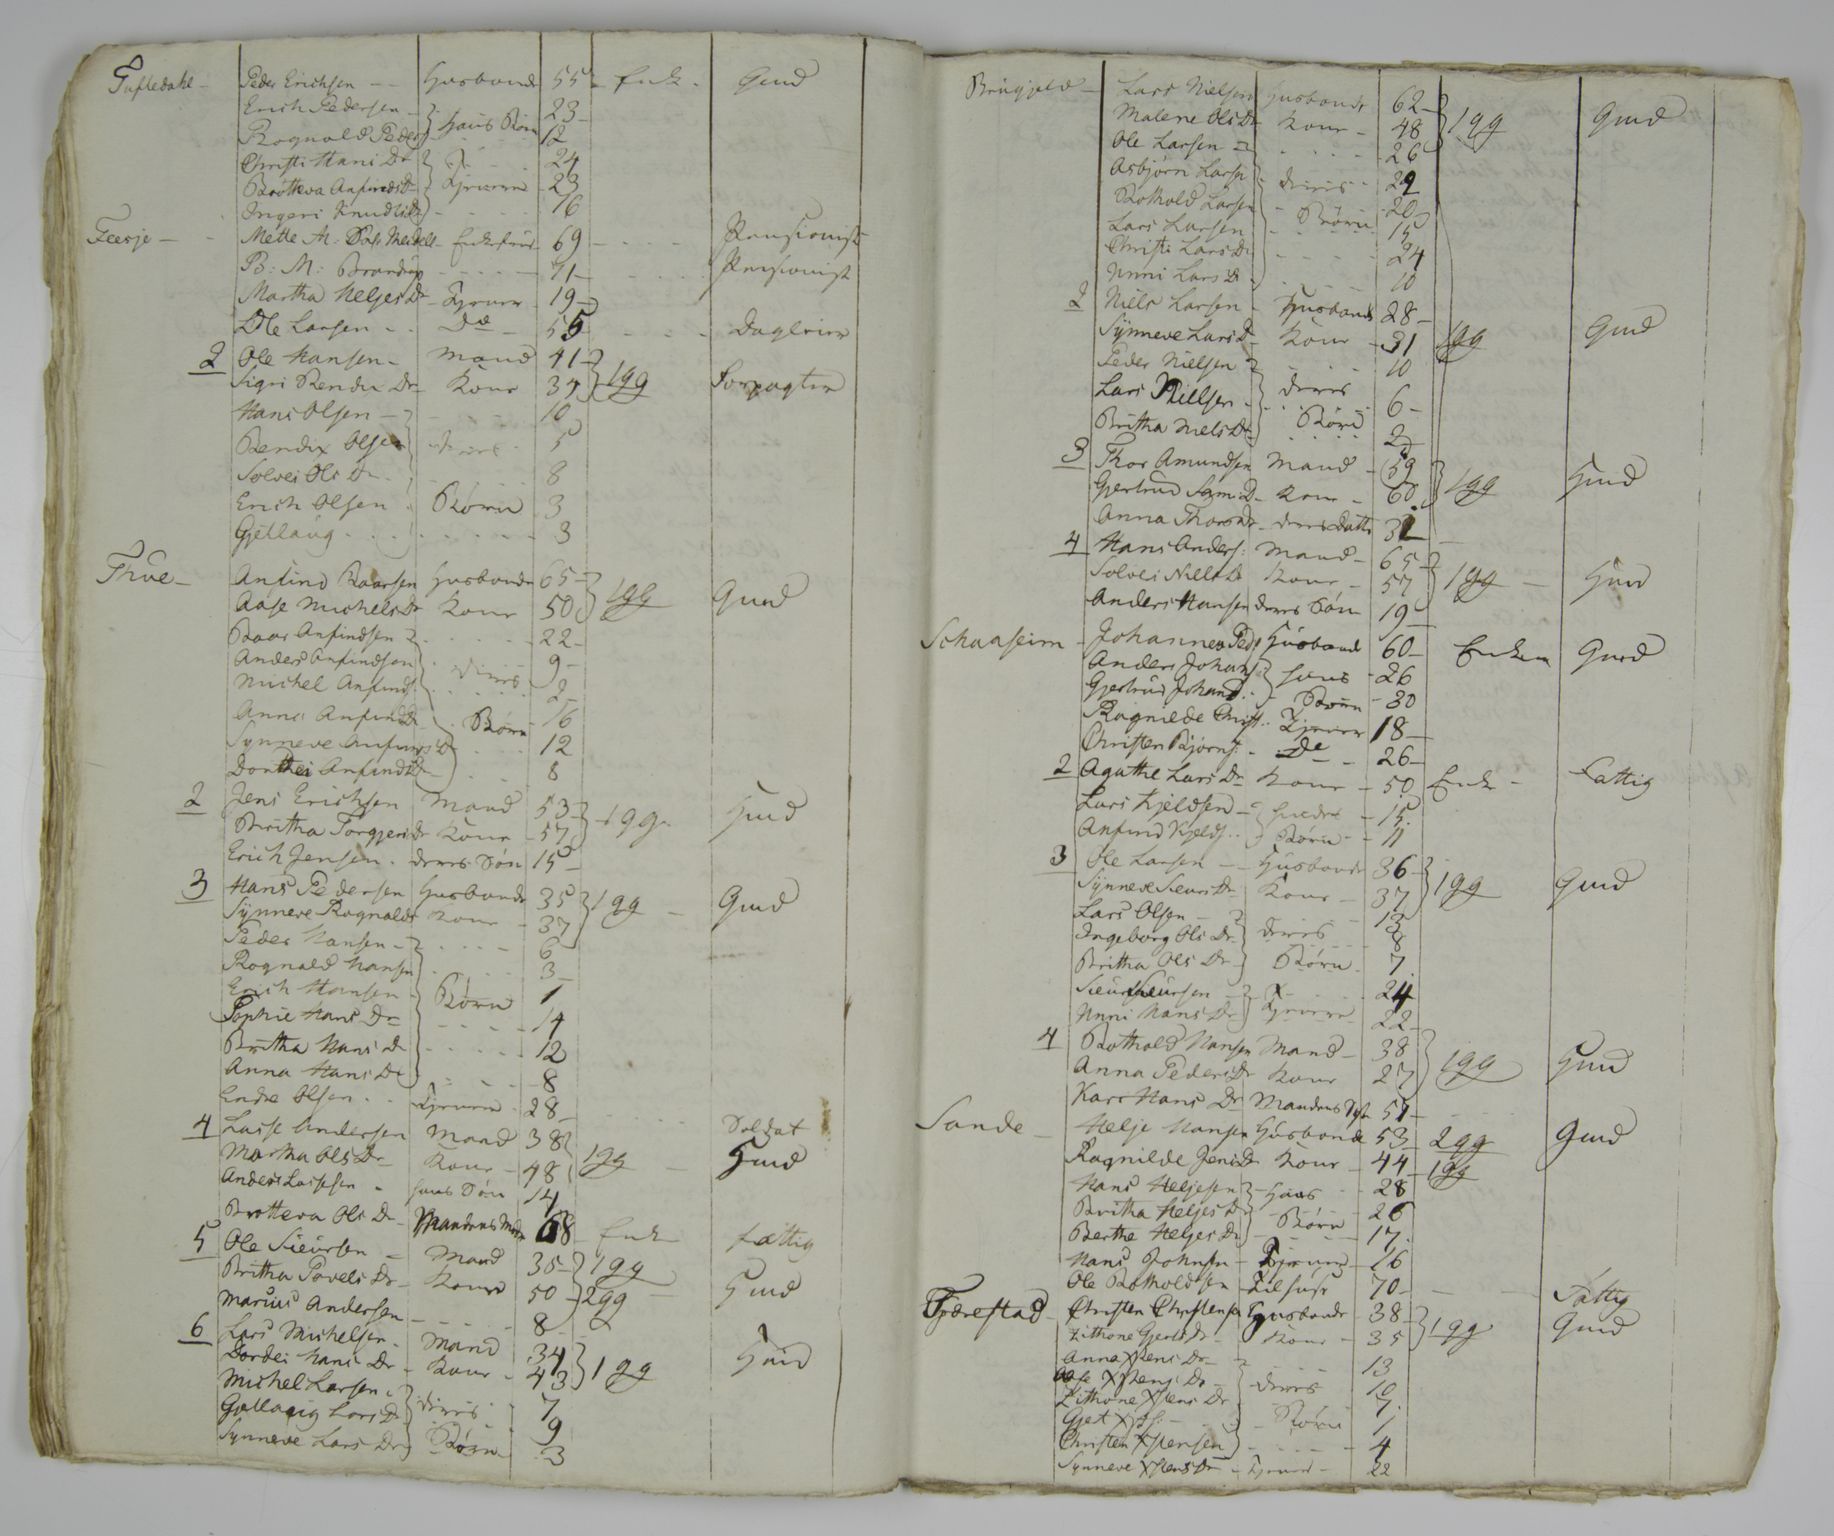 Tufledahl – Peder Erichsen – – Husbonde 55 – Enk. Gmd
Erich Pedersen – Hans Børn 23 –
Rognald Peders 12
Christi Hans Dr 24
Brötteva Anfinds Dr Tjenere 23
Ingeri Knuds Dr 16
Feesje – Mette M: Meidell Enkefrue 69 – Pensionist
B: M: 71 – Pensionist
Martha Heljes Dr Tjener 19 –
Ole Larsen – Do 55 Dagleier
2 Ole Hansen – Mand 41 – 1 gg Forpagter
Sigri Bendix Dr – Kone 34
Hans Olsen – 10
Bendix Olsen deres 5
Solvei Ols Dr 8
Erich Olsen Børn 3
Gjetlaug 3
Thue – Anfind Baarsen Husbonde 65 – 1 gg Gmd
Aase Michels Dr Kone 50
Baar Anfindsen 22 –
Anders Anfindsen deres 9 –
Michel Anfinds: 2 –
Anna Anfinds D – Børn 16
Synneve Anfinds D 12
Dorthei Anfinds D – 8
2 Jens Erichsen Mand 53 – 1 gg. Hmd
Britha Torgjers Dr Kone – 57
Erich Jensen. deres Søn 15 –
3 Hans Pedersen Husbonde 35 1 gg – Gmd
Synneve Rognalds Kone – 37
Peder Hansen – 6
Rognald Hansen 3 –
Erich Hansen Børn 1
Sophie Hans Dr 14
Britha Hans D 12
Anna Hans D 8
Endre Olsen Tjenere 28 –
4 Lasse Andersen Mand 38 1 gg – Soldat
Martha Ols Dr – Kone – 48 Hmd
Anders Lassesen – hans Søn 14
Brotteva Ols D – Mandens Moder 68 – Enke fattig
5 Ole Sieursen – Mand 35 – 1 gg
Britha Povels Dr – Kone 50 – 2 gg – Hmd
Marius Andersen 8 –
6 Lars Michelsen – Mand 34 1 gg Hmd
Dordei Hans Dr – Kone – 43
Michel Larsen deres 7
Gøllaug Lars D 9
Synneve Lars Dr Børn 3
Lars Nielsen Husbonde 62 – 1 gg Gmd
Malene Ols D – Kone – 48
Ole Larsen 26
Asbjørn Larsen deres 29
Bothold Larsen Børn 20
Lars Larsen 15
Christi Lars D 24
Unni Lars D 10
2 Niels Larsen – Husbonde 28 – 1 gg Gmd
Synneve Lars D – Kone – 31
Peder Nielsen 10
Lars Nielsen – deres 6 –
Britha Niels D – Børn 2
3 Thor Amundsen Mand – 59 1 gg Hmd
Gjertrud Sam: D – Kone – 60
Anna Thors D – deres Datter 31
4 Hans Anders: Mand – 65 – 1 gg – Hmd
Solvei Niels D Kone – 57
Anders Hansen deres Søn 19 –
Schaaseim – Johannes Peds Husbonde 60 – Enkem Gmd
Anders Johans: hans – 26
Gjertrud Johand. Børn – 30
Ragnilde Christ. Tjener 18 –
Christen Bjørns: – De – 26 –
2 Agathe Lars Dr Kone – 50 Enke – Fattig
Lars Kjeldsen – hendes – 15
Anfind Kjelds – Børn – 11
3 Ole Larsen – Husbonde 36 – 1 gg Gmd
Synneve Sieurs Dr Kone – 37
Lars Olsen – deres 13
Ingeborg Ols Dr 8
Britha Ols Dr – Børn 7
Sieur Sieursen – 24
Unni Hans Dr Tjenere 22 –
4 Bothold Hansen Mand – 38 1 gg Hmd
Anna Peders Dr Kone 27
Kari Hans Dr Mandens Syst 51 –
Sande – Helje Hansen Husbonde 53 – 2 gg Gmd
Ragnilde Jens D Kone – 44 – 1 gg
Hans Heljesen Hans 28
Britha Heljes D Børn 26
Berthe Heljes D 17
Hans Johnsen – Tjener 16
Ole Botholdsen 70 – Fattig
Fjærestad – Christen Christensen Husbonde – 38 – 1 gg Gmd
Zithone Gjerts Dr Kone – 35
Anna Xstens Dr – 13
Aase Xstens Dr – deres 10
Zithone Xstens Dr 7
Gjert Børn 1
Christen Xstensen 4
Synneve Xstens Dr – Tjener – 22